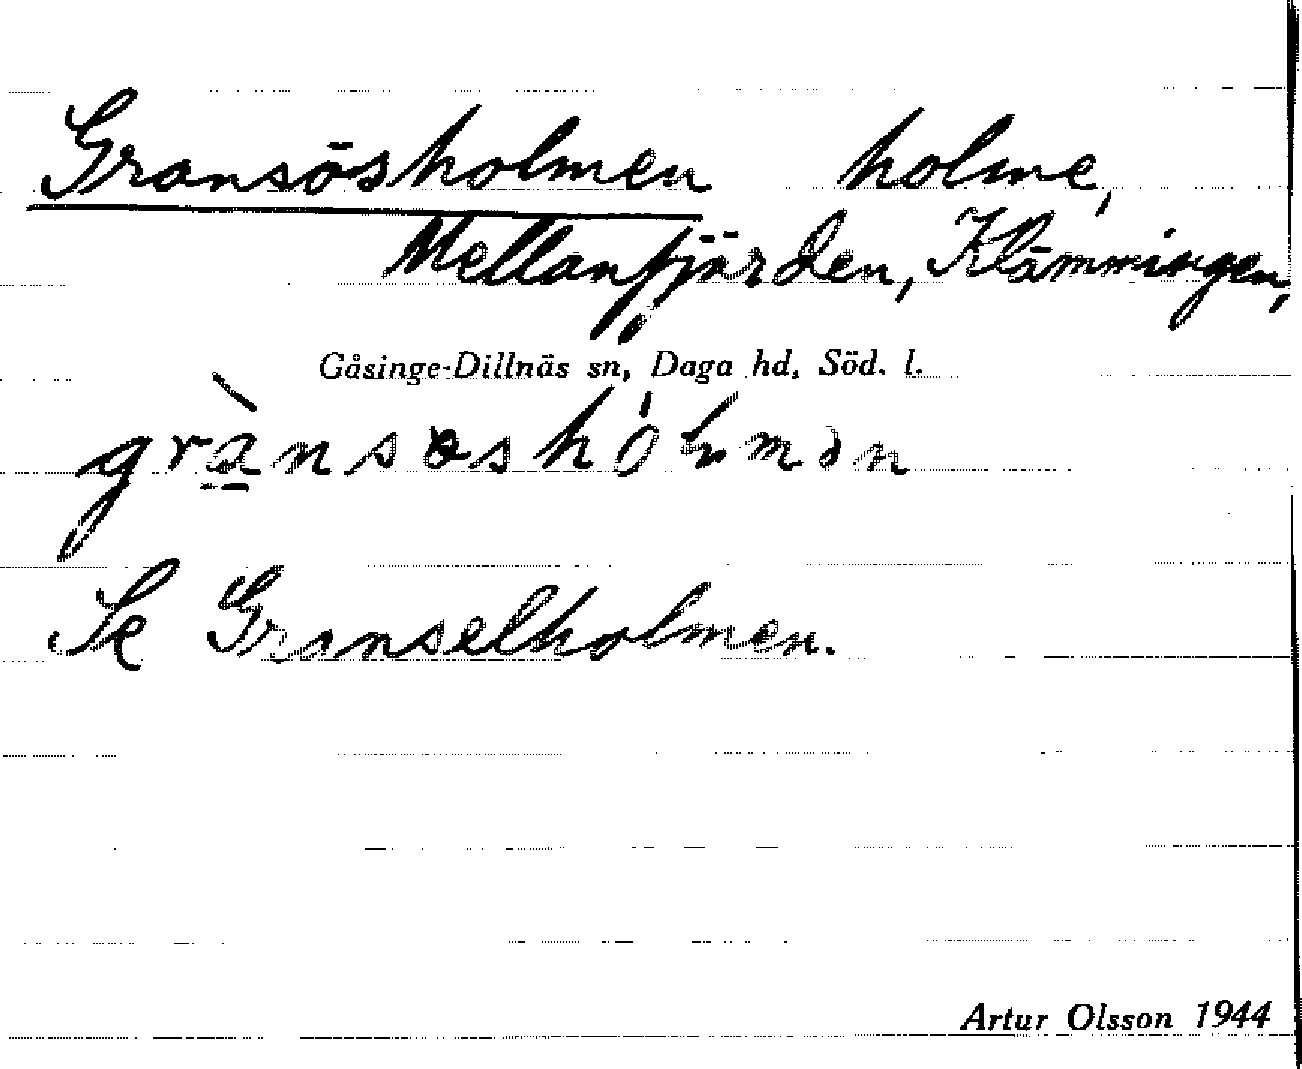 Gransösholmen holme,
Mellanfjärden, Klämmingen,
Gåsinge-Dillnäs sn, Daga hd, Söd. l.
Se Granselholmen.
Artur Olsson 1944